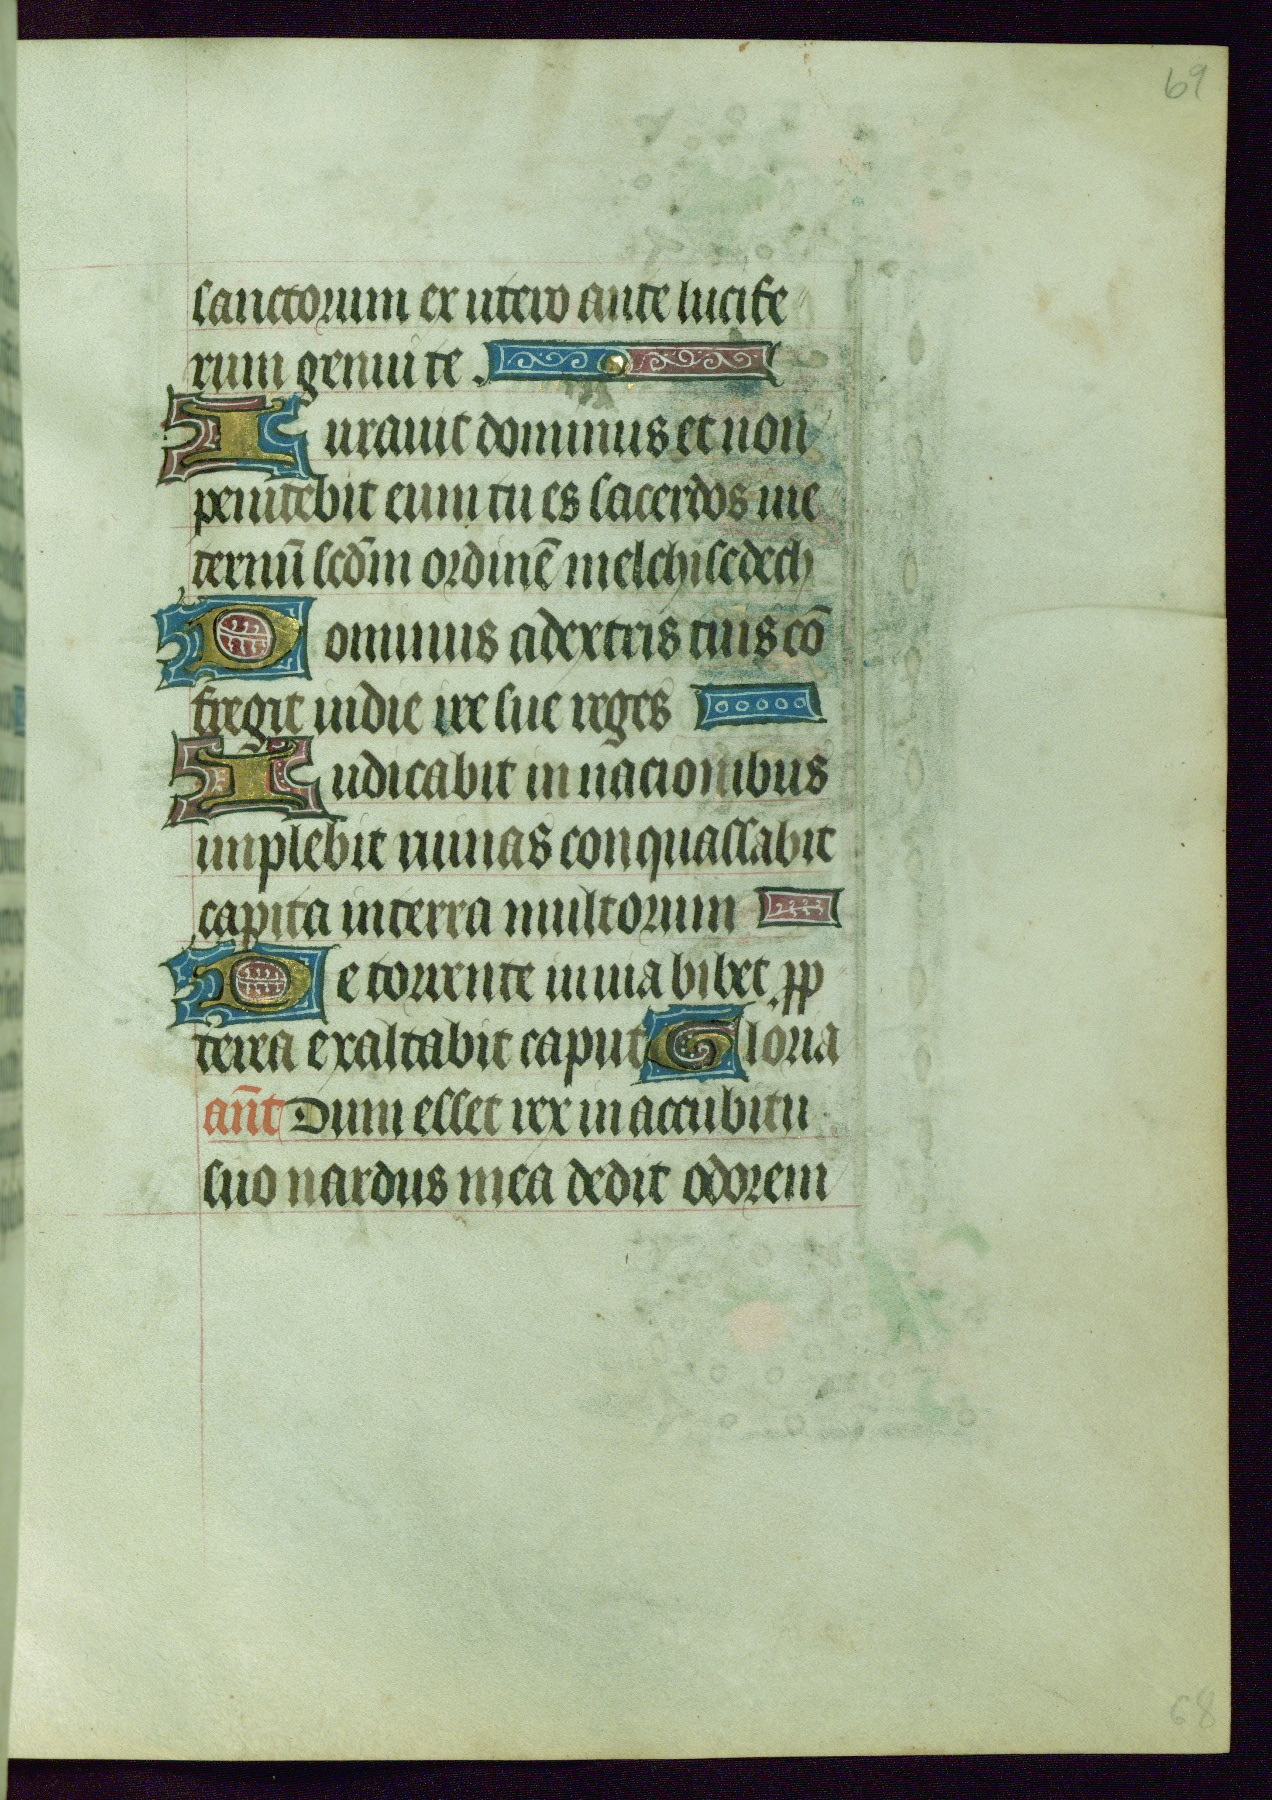 69
sanctorum ex utero ante lucife
rum genui te .
Iurauit dominus et non
penitebit eum tu es sacerdos ine
ternū scdm̄ ordinē melchisedech
Dominus adextris tuis cō
fregit indie ire sue reges
Iudicabit in nacionibus
implebit ruinas conquassabit
capita interra multorum
De torrente in uia bibet pp
terea exaltabit caput Gloria
an̄t Dum esset rex in accubitu
suo nardus mea dedit odorem
68